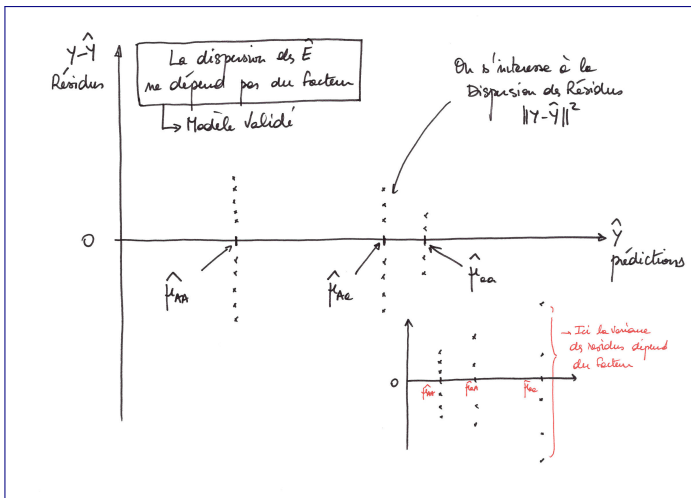 Y-Ŷ
Résidus
La dispersion des Ê
ne dépend pas du facteur
↳ Modèle Validé
On s'interesse à la
Dispersion des Résidus
||Y-Ŷ||²
0
Ŷ
prédictions
μ̂AA
μ̂Aa
μ̂aa
→ Ici la variance
des residus dépend
du facteur
0
μ̂AA
μ̂aA
μ̂aa